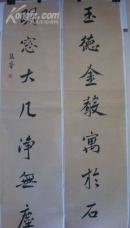 玉德金聲寓於石
窓大几淨無塵